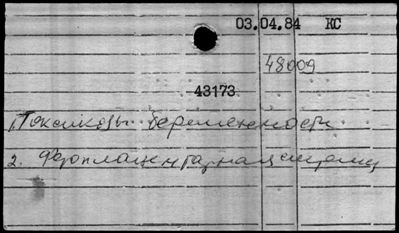 03.04.84 КС
48009
43173
1. Токсикозы беременности
2. Фетоплацентарная система